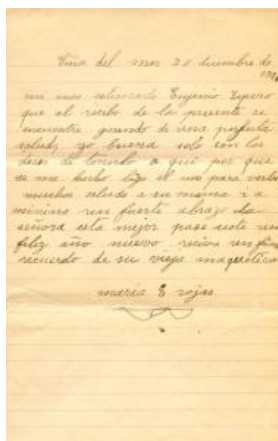 Viña del mar 20 disiembre de
mi mas estimado Eugenio Espero
que al recibo de la presente se
encuentre gosando de una perfecta
salud yo buena solo con los
deseos de tenerlo a qui por que
se me hecho el mes para verlo
muchos saludo a su mamá i a
minino un fuerte abrazo la
señora está mejor pase usté un
feliz año nuevo reciva un
recuerdo de su vieja
maria E rojas